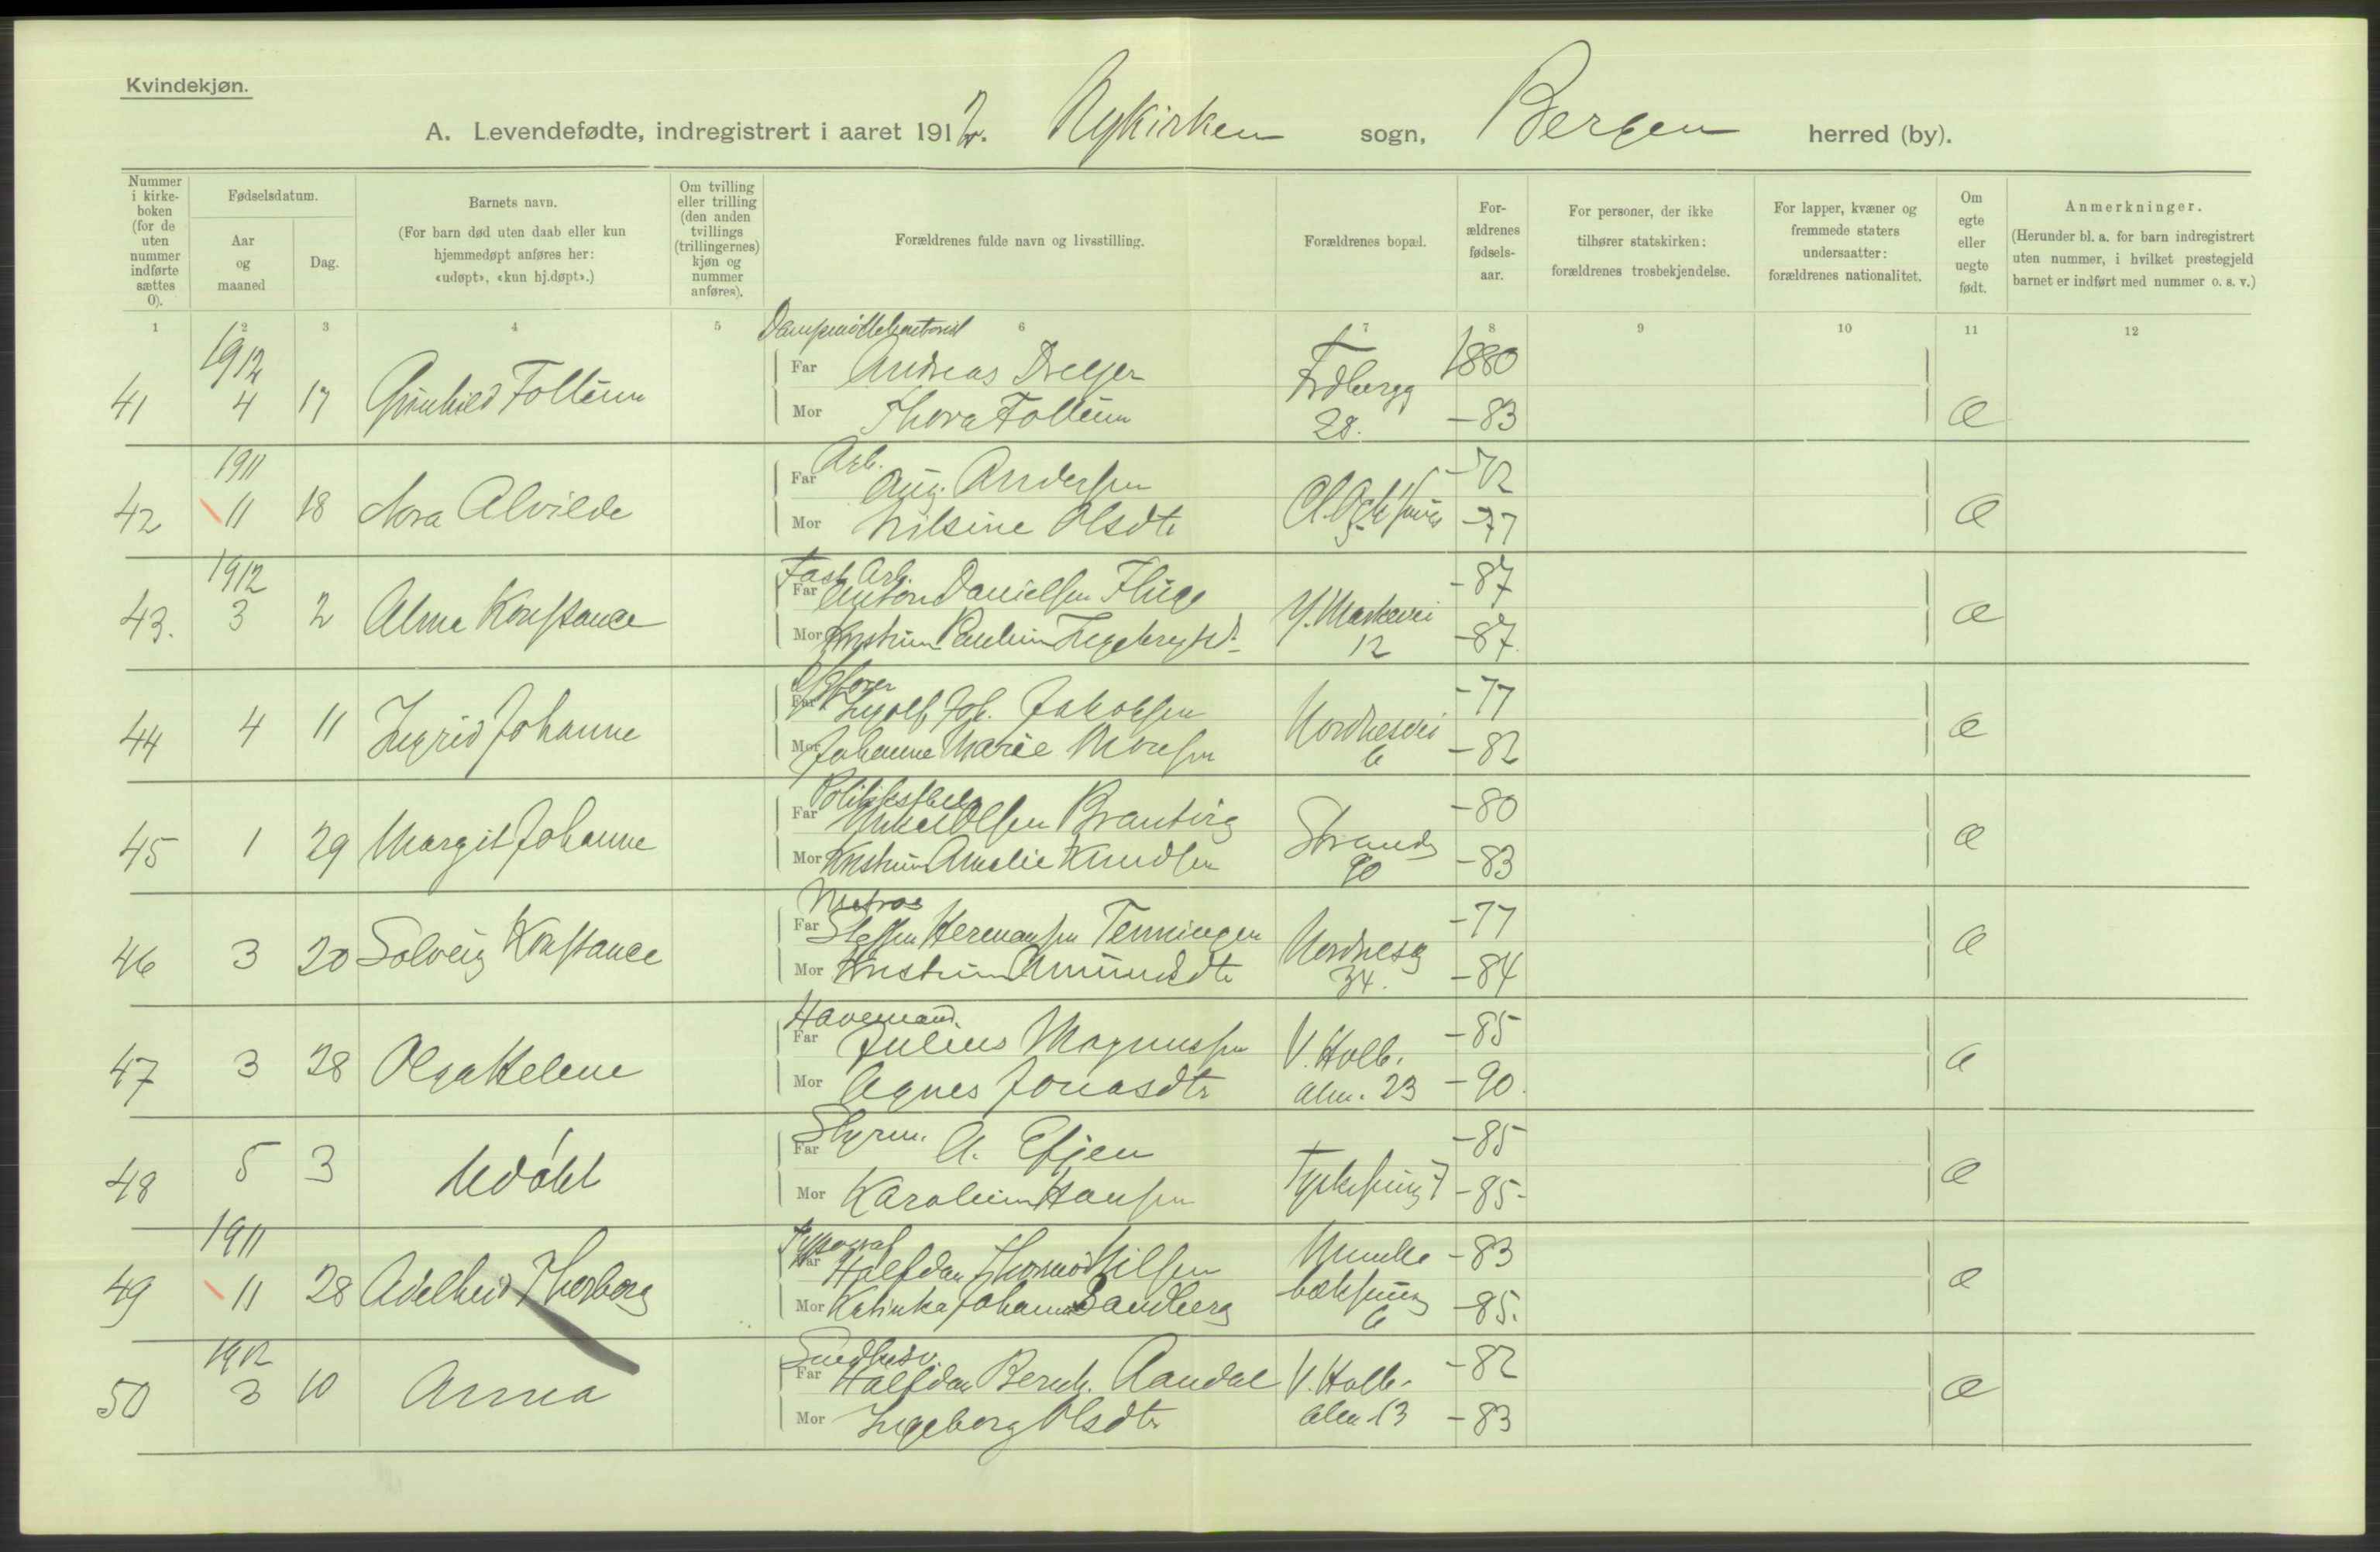 Kvindekjøn.
A. Levendefødte, indregistrert i aaret 1912. Nykirken sogn, Bergen herred (by).
Nummer i kirkeboken (for de uten nummer indførte sættes 0).
Fødselsdatum.
Aar og maaned
Dag.
Barnets navn.
(For barn død uten daab eller kun hjemmedøpt anføres her: «udøpt», «kun hj.døpt».)
Om tvilling eller trilling (den anden tvillings (trillingernes) kjøn og nummer anføres).
Forældrenes fulde navn og livsstilling.
Forældrenes bopæl.
Forældrenes fødselsaar.
For personer, der ikke tilhører statskirken: forældrenes trosbekjendelse.
For lapper, kvæner og fremmede staters undersaatter: forældrenes nationalitet.
Om egte eller uegte født.
Anmerkninger.
(Herunder bl. a. for barn indregistrert uten nummer, i hvilket prestegjeld barnet er indført med nummer o. s. v.)
1 2 3 4 5 6 7 8 9 10 11 12
1912
41 4 17 Gunhild Follum
Far Andreas Dreyer 1880
Mor Thora Follum 28. -83 e
1911
42 11 18 Nora Alvilde
Arb.
Far Aug. Andersen -72
Mor Nilsine Olsdtr 5 -77 e
1912
43. 3 2 Alma Konstance
Fast Arb.
Far Anton Danielsen Fluge -87
Mor 12 -87. e
44 4 11 Ingrid Johanne
Far Ingolf Joh. Jakobsen Nordnesvei -77
Mor Johanne Marie Monsen 6 -82 e
45 1 29 Margit Johanne
Far Mikal Olsen -80
Mor Kristine Amalie Knudsen Strandg 90 -83 e
46 3 20 Solveig Konstance
Matros
Far Steffen Hermansen Tenningen Nordnesg -77
Mor Kristine Amundsdtr 34. -84 e
47 3 28 Olga Helene
Havemand.
Far Julius Magnussen V. Holb. -85
Mor Agnes Jonasdtr alm. 23 -90. e
48 5 3 Udøbt
Styrm.
Far A. -85
Mor Karoline Hansen 7 -85- e
1911
49 11 28 Adelheid Thorborg
Typograf
Far Halfdan Thormod Nilsen Munke -83
Mor Katinka Johanne Sandberg bæksmug 6 -85. e
1912
50 3 10 Anna
Smedsv.
Far Halfdan Bernh. Aandal V. Holb. -82
Mor Ingeborg Olsdtr alm 13 -83 e